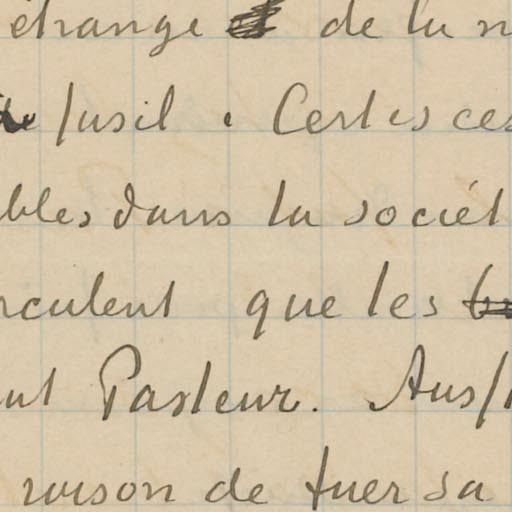 étrange de la n
fusil. Certes ces
bles dans la sociét
rculent que les
ut Pasteur. Auss
raison de tuer sa